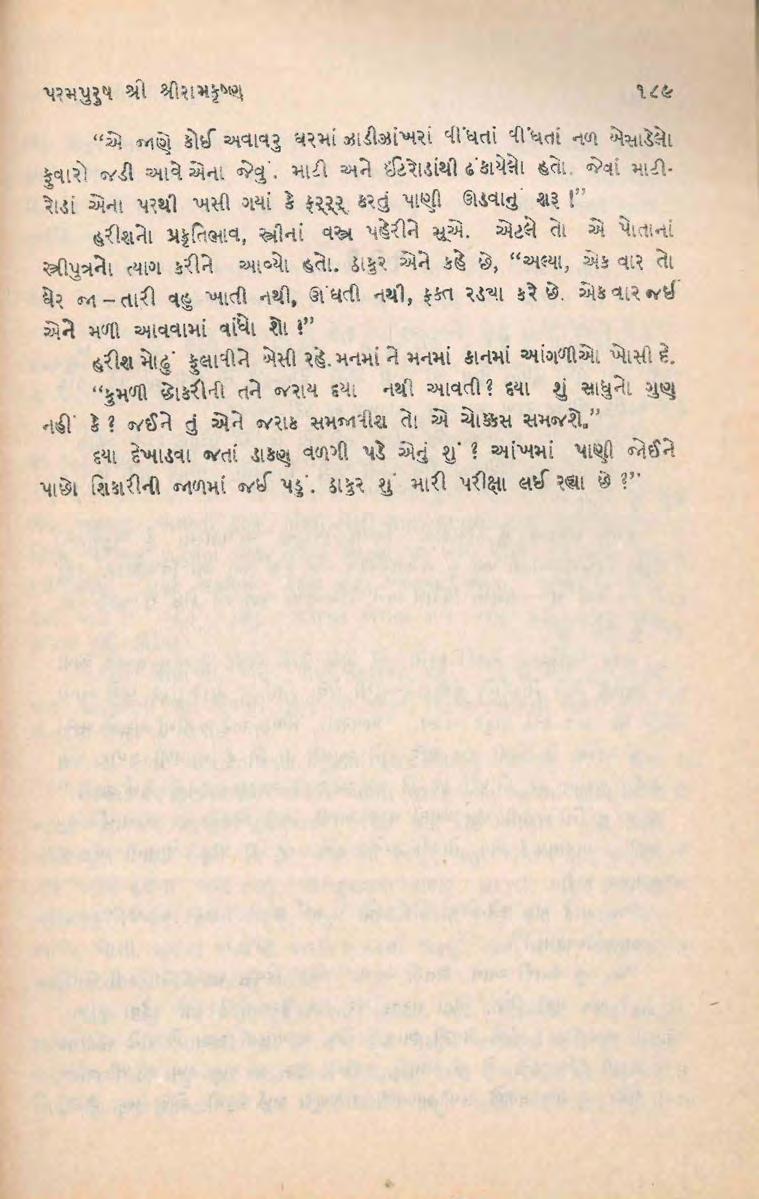 પરમપુરુષ શ્રી શ્રીરામકૃષ્ણ ૧૮૯
“એ જાણે કોઈ અવાવરુ ઘરમાં ઝાડીઝાંખરાં વીંધતાં વીંધતાં નળ બેસાડેલો
ફુવારો જડી આવે એના જેવું. માટી અને ઈંટરોડાંથી ઢંકાયેલો હતો. જેવાં માટી-
રોડાં એના પરથી ખસી ગયાં કે ફરરર કરતું પાણી ઊડવાનું શરૂ !”
હરીશનો પ્રકૃતિભાવ, સ્ત્રીનાં વસ્ત્ર પહેરીને સૂએ. એટલે તો એ પોતાનાં
સ્ત્રીપુત્રનો ત્યાગ કરીને આવ્યો હતો. ઠાકુર એને કહે છે, “અલ્યા, એક વાર તો
ઘેર જા – તારી વહુ ખાતી નથી, ઊંઘતી નથી, ફક્ત રડ્યા કરે છે. એક વાર જઈ
એને મળી આવવામાં વાંધો શો ?”
હરીશ મોઢું ફુલાવીને બેસી રહે. મનમાં ને મનમાં કાનમાં આંગળીઓ ખોસી દે.
“કુમળી છોકરીની તને જરાય દયા નથી આવતી? દયા શું સાધુનો ગુણ
નહીં કે ? જઈને તું એને જરાક સમજાવીશ તો એ ચોક્કસ સમજશે.”
દયા દેખાડવા જતાં ડાકણ વળગી પડે એનું શું ? આંખમાં પાણી જોઈને
પાછો શિકારીની જાળમાં જઈ પડું. ઠાકુર શું મારી પરીક્ષા લઈ રહ્યા છે ?”